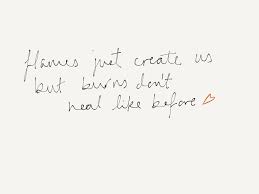 flames just create us
but burns don't
heal like before